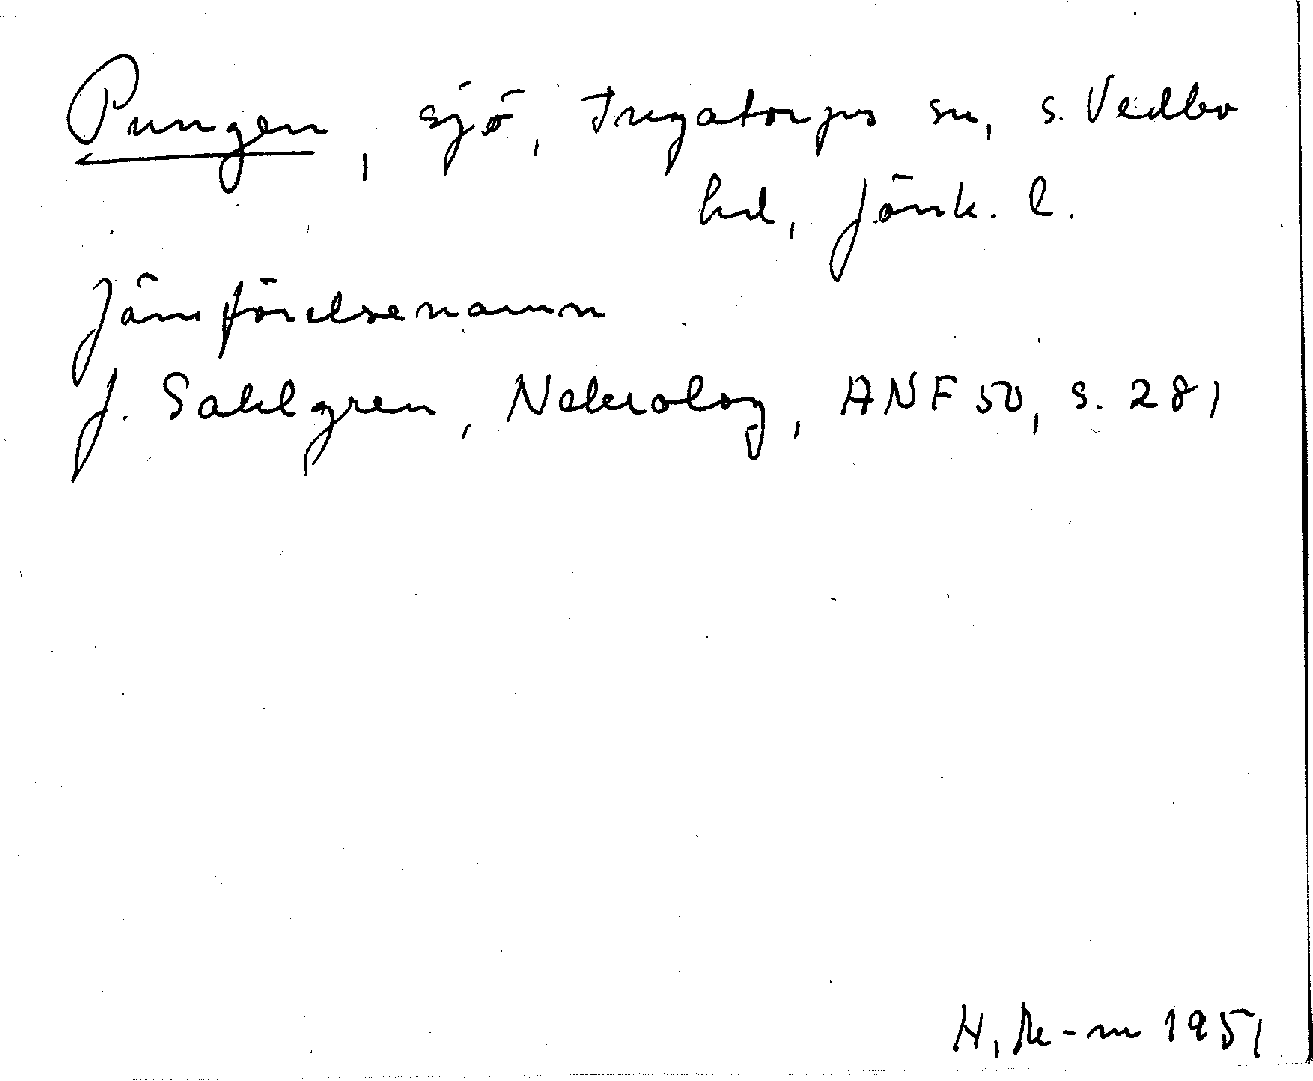 Pungen, sjö, Ingatorps sn, S. Vedbo
hd, Jönk. l.
Jämförelsenamn
J. Sahlgren, Nekrolog, ANF 50, s. 281
H. 1951